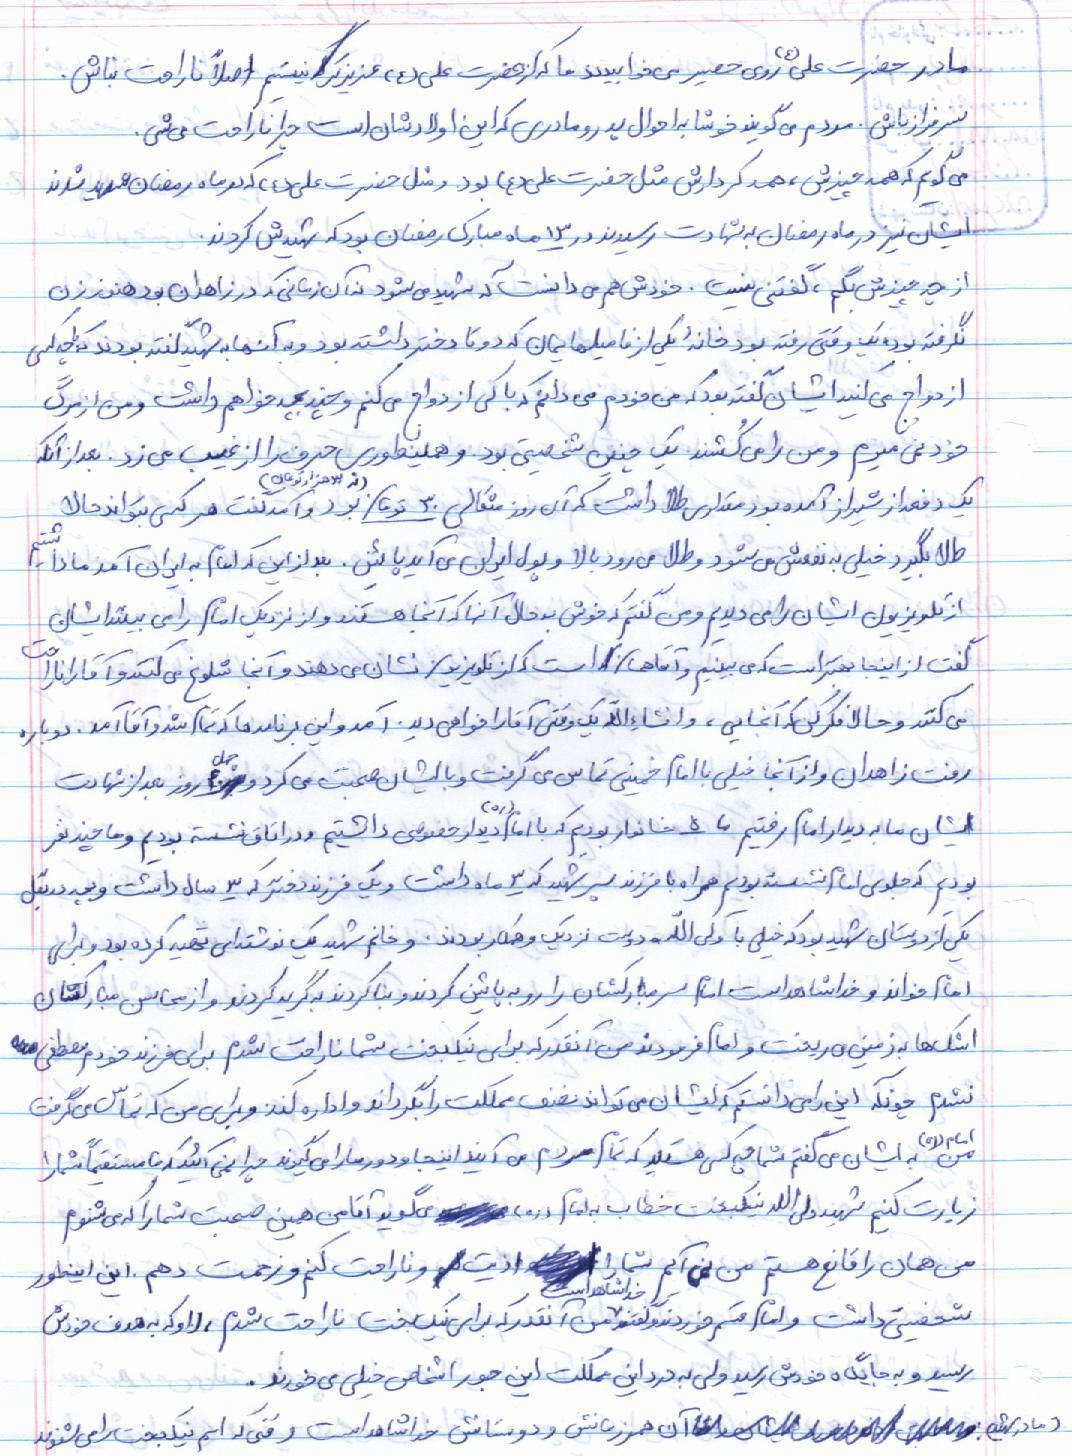 مادر حضرت علی(ع) روی حصیر می خوابیدند ما که از حضرت علی(ع) عزیزتر که نیستیم اصلاً ناراحت نباش.
سرفراز باش. مردم می گویند خوشا به احوال پدر و مادری که این اولادشان است چرا ناراحت می شی.
می گویم که همه چیزش، همه کردارش مثل حضرت علی(ع) بود. و مثل حضرت علی(ع) که در ماه رمضان شهید شدند
ایشان نیز در ماه رمضان به شهادت رسیدند در ۱۳ ماه مبارک رمضان بود که شهیدش کردند.
از چه چیزش بگم، گفتنی نیست. خودش هم می دانست که شهید می شود نه آن زمانی که در زاهدان بود هنوز زن
نگرفته بود یک وقتی رفته بود خانهٔ یکی از فامیلهایمان که دو تا دختر داشته بود و به آنها به شهید گفته بودند که با چه کسی
ازدواج می کنید ایشان گفته بود که من خودم می دانم که با کی ازدواج می کنم و چند بچه خواهم داشت و من از مرگ
خود نمی میرم و من را می کُشند. یک چنین شخصیتی بود. و همینطوری حرف را از غیب می زد. بعد از آنکه
یک دفعه از شیراز آمده بود مقداری طلا داشت که آن روز مثقالی ۳۰ تومان بود (نه ۳۰ هزار تومان) و آمد گفت هر کس بتواند حالا
طلا بگیرد خیلی به نفعش می شود و طلا می رود بالا و پول ایران می آید پائین. بعد از این که امام به ایران آمد ما داشتیم
از تلویزیون ایشان را می دیدیم و من گفتم که خوش به حال آنها که آنجا هستند و از نزدیک امام را می بینند ایشان
گفت از اینجا بهتر است که می بینیم و آقا است که از تلویزیون نشان می دهند و آنجا شلوغ می کنند و آقا را ناراحت
می کنند و حالا فکر کن که آنجایی، و انشاءالله یک وقتی آقا را خواهی دید. آمد و این برنامه ها که تمام شد و آقا آمد. دوباره
رفت زاهدان و از آنجا خیلی با امام خمینی تماس می گرفت و با ایشان صحبت می کرد و چهل روز بعد از شهادت
ایشان ما به دیدار امام رفتیم ما خانوار بودیم که با امام(ره) دیدار خصوصی داشتیم و در اتاق نشسته بودیم و ما چند نفر
بودیم که جلوی امام نشسته بودیم همراه با فرزند پسر شهید که ۳ ماه داشت و یک فرزند دختر که ۳ سال داشت و بچه در بغل
یکی از دوستان شهید بود که خیلی با آن ولی الله دوست نزدیک و همکار بودند. و خانم شهید یک نوشته ای تهیه کرده بود و برای
امام خواند و خدا شاهد است امام سر مبارکشان را رو به پائین کردند و بنا کردند به گریه کردن و از محاسن مبارکشان
اشک ها به زمین می ریخت و امام فرمودند من آنقدر که برای نیکبخت شما ناراحت شدم برای فرزند خودم مصطفی
نشدم چونکه این را می دانستم که ایشان می تواند نصف مملکت را بگرداند و اداره کند و برای من که تماس می گرفت
من امام(ره) به ایشان می گفتم شما چه کسی هستید که تمام مردم می آیند اینجا و دور ما را می گیرند چرا نمی آئید که ما مستقیماً شما را
زیارت کنیم شهید ولی الله نیکبخت خطاب به امام(ره) می گوید آقا من همین صحبت شما را که می شنوم
من همان را قانع هستم من نمی آیم شما را اذیت و ناراحت کنم و زحمت دهم. این اینطور
شخصیتی داشت و امام قسم خوردند گفتند خدا شاهد است من آنقدر که برای نیکبخت ناراحت شدم، او که به هدف خودش
رسید و به جایگاه خودش رسید ولی به درد این مملکت این جور اشخاص خیلی می خورند.
(مادر شهید: آن همرزمانش و دوستانش خدا شاهد است وقتی که اسم نیکبخت را می شنوند